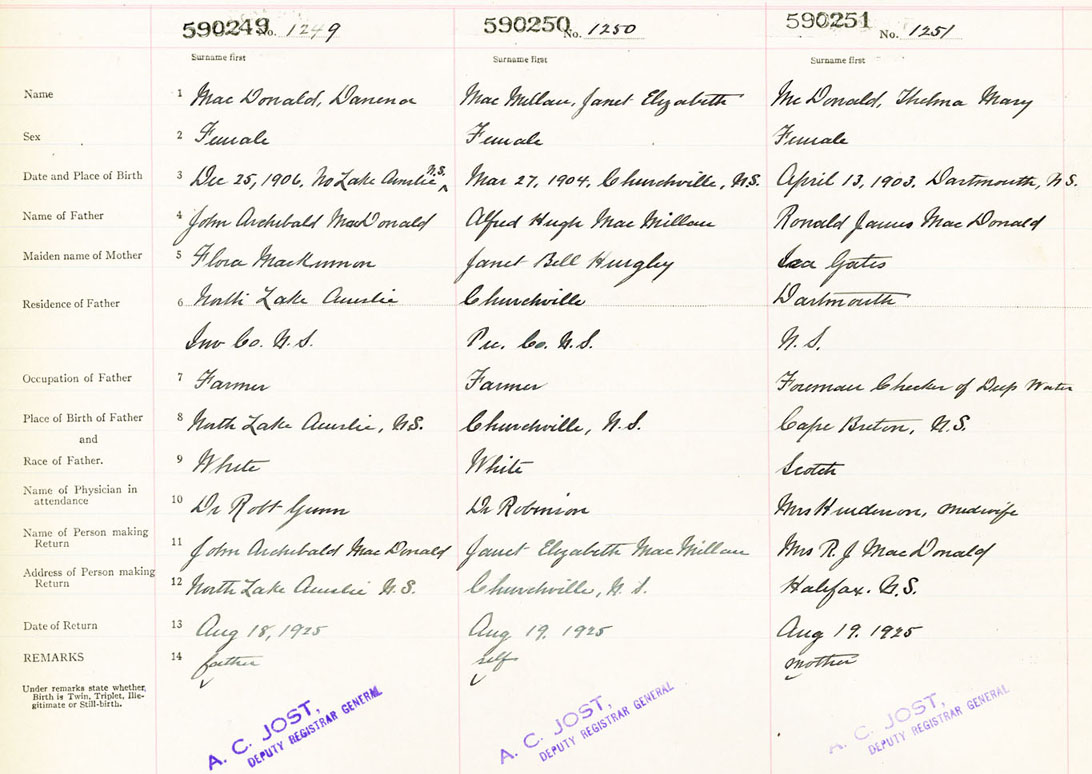 590249 No. 1249 590250 No. 1250 590251 No. 1251
Surname first Surname first Surname first
Name 1 Mac Donald, Danena Mac Millan, Janet Elizabeth Mc Donald, Thelma Mary
Sex 2 Female Female Female
Date and Place of Birth 3 Dec 25, 1906, No Lake Ainslie N.S. Mar 27, 1904, Churchville, N.S. April 13, 1903, Dartmouth, N.S.
Name of Father 4 John Archibald MacDonald Alfred Hugh Mac Millan Ronald James Mac Donald
Maiden name of Mother 5 Flora MacKinnon Janet Bell Gates
Residence of Father 6 North Lake Ainslie Churchville Dartmouth
Inv Co. N.S. Pic. Co. N.S. N.S.
Occupation of Father 7 Farmer Farmer Foreman Checker of Deep Water
Place of Birth of Father 8 North Lake Ainslie, N.S. Churchville, N.S. Cape Breton, N.S.
and
Race of Father. 9 White White Scotch
Name of Physician in
attendance 10 Dr Robt Gunn Dr Robinson Mrs Henderson, midwife
Name of Person making
Return 11 John Archibald Mac Donald Janet Elizabeth Mac Millan Mrs R. J MacDonald
Address of Person making
Return 12 North Lake Ainslie N.S. Churchville, N.S. Halifax. N.S.
Date of Return 13 Aug 18, 1925 Aug 19. 1925 Aug 19. 1925
REMARKS 14 father self mother
Under remarks state whether
Birth is Twin, Triplet, Ille-
gitimate or Still-birth.
A. C. JOST, A. C. JOST, A. C. JOST,
DEPUTY REGISTRAR GENERAL DEPUTY REGISTRAR GENERAL DEPUTY REGISTRAR GENERAL